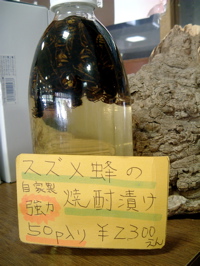 スズメ蜂の
自家製 焼酎漬け
強力
50p入り ¥2300えん